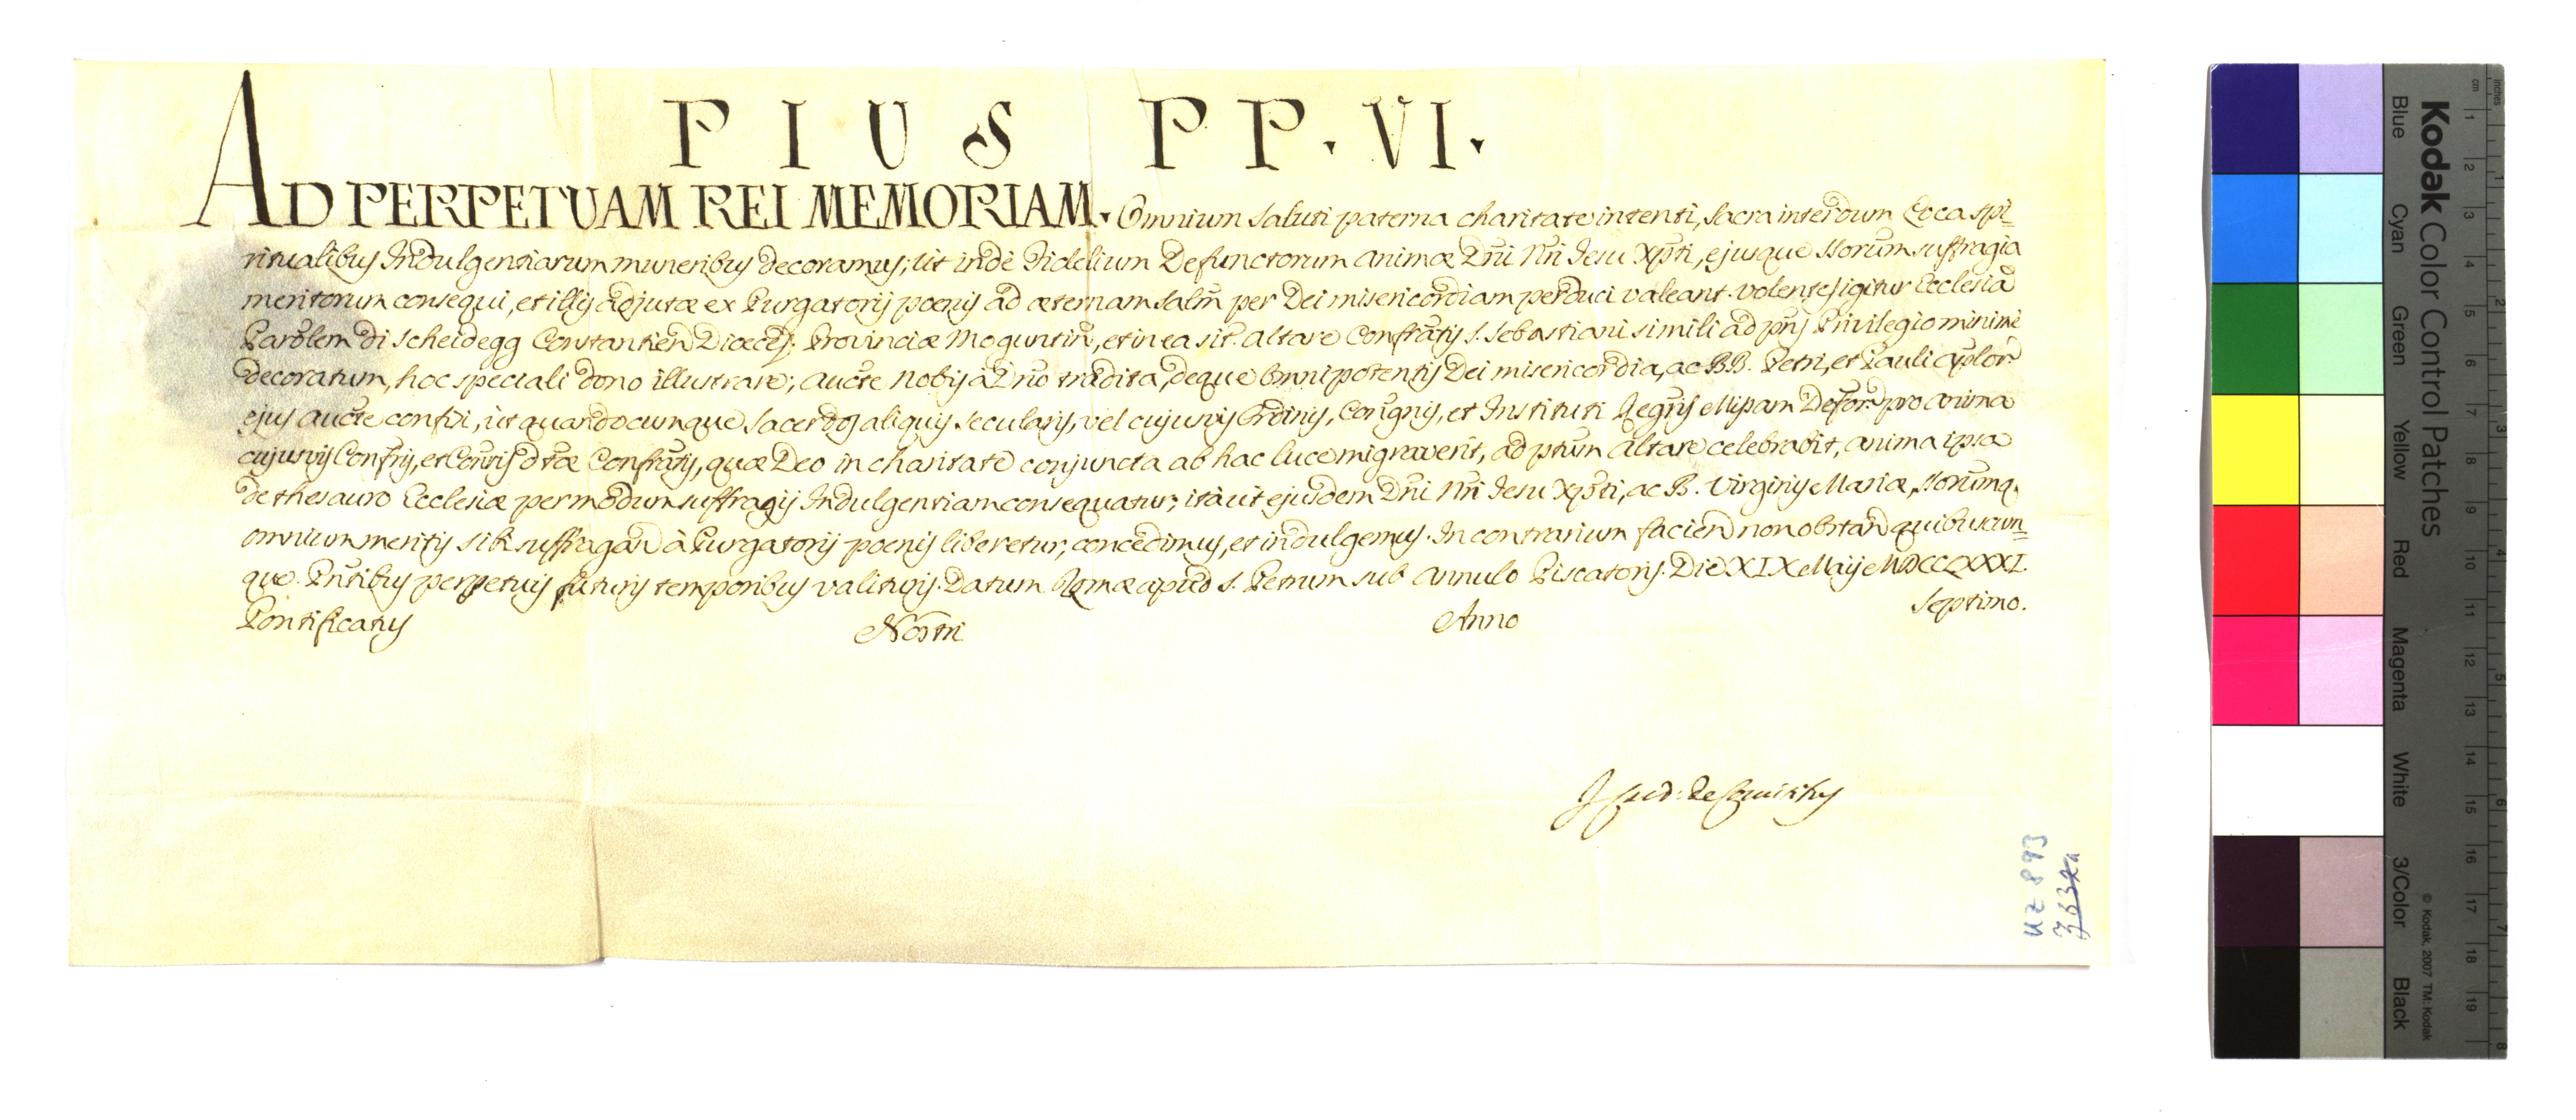 PIUS PP. VI.
AD PERPETUAM REI MEMORIAM. Omnium saluti paterna charitate intenti, sacra interdum Loca spi=
ritualibus Indulgentiarum muneribus decoramus; ut indè Fidelium Defunctorum animæ Dñi Ñri Jesu Xp̃ti, ejusque SSorum suffragia
meritorum consequi, et illis adjutæ ex Purgatorij poenis ad æternam salm̃ per Dei misericordiam perduci valeant. Volentes igitur Ecclesiã
Parõlem di Scheidegg Constantien Dioeces. Provinciæ Moguntin, et in ea sit. Altare Confrãtis S. Sebastiani simili ad pñs Privilegio minimè
decoratum, hoc speciali dono illustrare; aucte nobis à Dno tradita, deque omnipotentis Dei misericordia, ac BB. Petri, et Pauli Aplor
ejus aucte confisi, ut quandocumque Sacerdos aliquis secularis, vel cujusvis Ordinis, Congnis, et Instituti Regris Missam Defor pro anima
cujusvis Confris, et Consris dtæ Confrãtis, quæ Deo in charitate conjuncta ab hac luce migraverit, ad ptum Altare celebrabit, anima ipsa
de thesauro Ecclesiæ per modum suffragij Indulgentiam consequatur; ità ut ejusdem Dñi Ñri Jesu Xp̃ti, ac B. Virginis Mariæ, SSorumq.
omnium meritis sibi suffragan à Purgatorij poenis liberetur, concedimus, et indulgemus. In contrarium facien non obstan quibuscun=
que. Pñtibus perpetuis futuris temporibus valituris. Datum Romæ apud S. Petrum sub Annulo Piscatoris. Die XIX Maij MDCCLXXXI.
Pontificatus Nostri Anno Septimo.
UZ 893
Kodak Color Control Patches
Blue Cyan Green Yellow Red Magenta White 3/Color Black
© Kodak, 2007 TM: Kodak
cm 1 2 3 4 5 6 7 8 9 10 11 12 13 14 15 16 17 18 19
inches 1 2 3 4 5 6 7 8